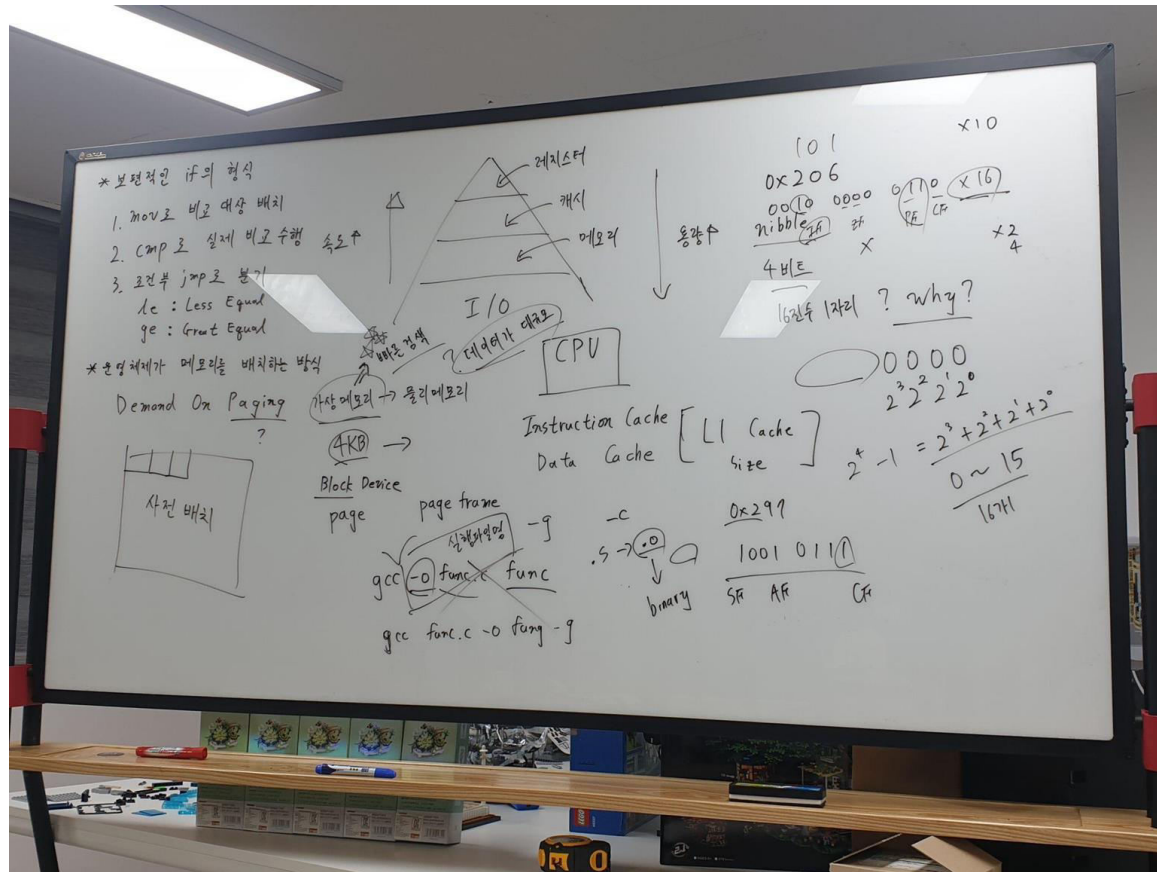 * 보편적인 if의 형식
1. mov로 비교 대상 배치
2. cmp로 실제 비교 수행
3. 조건부 jmp로 분기
le : Less Equal
ge : Great Equal
* 운영체제가 메모리를 배치하는 방식
Demand On Paging
?
사전 배치
속도↑
레지스터
캐시
메모리
I/O
용량↑
빠른 검색
데이터가 대규모
가상메모리 → 물리메모리
4KB →
Block Device
page
page frame
CPU
Instruction Cache
Data Cache
[ L1 Cache
Size ]
실행파일명
-g
gcc -o func.c func
gcc func.c -o func -g
-c
.s → .o
binary
101
x10
0x206
0010 0000 0110
x16
nibble
IF
ZF
PF
CF
x
x2
4
4비트
16진수 1자리 ? why?
0000
2³ 2² 2¹ 2⁰
2⁴ - 1 = 2³ + 2² + 2¹ + 2⁰
0 ~ 15
16개
0x297
1001 0111
SF AF CF